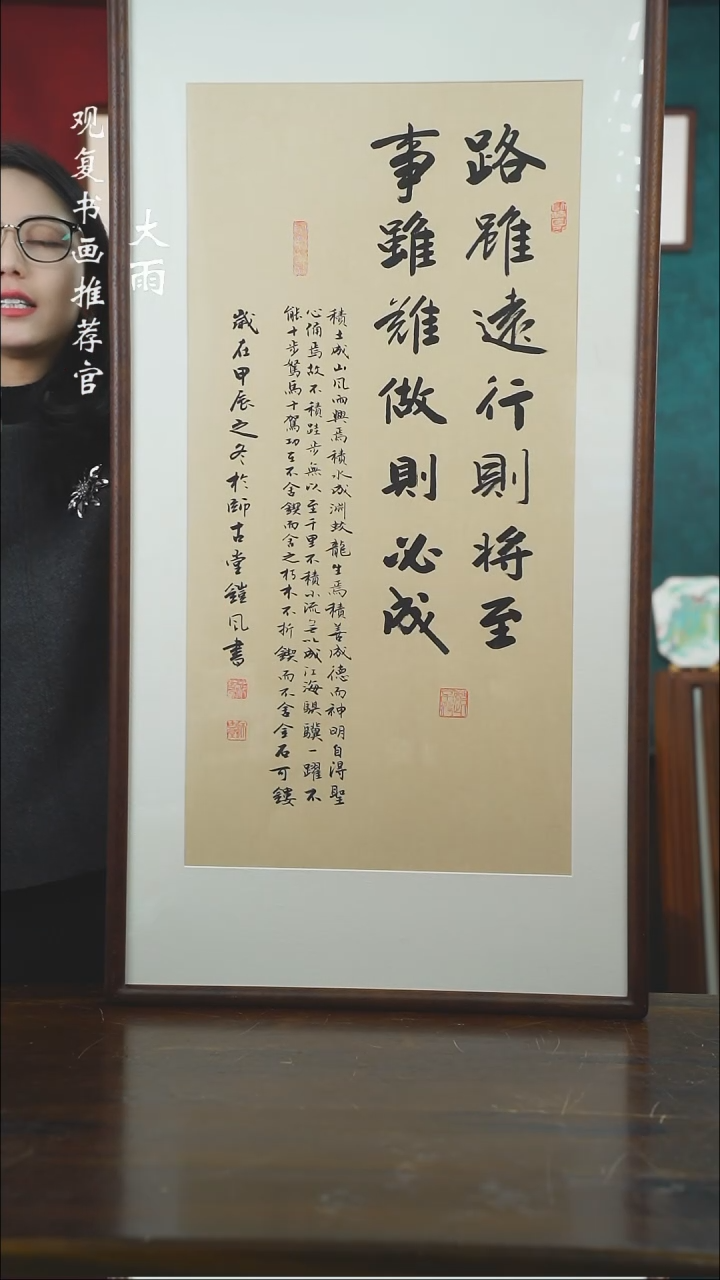 路雖遠行則将至
事雖難做則必成
積土成山風雨興焉積水成淵蛟龍生焉積善成德而神明自得聖
心備焉故不積跬步無以至千里不積小流無以成江海騏驥一躍不
能十步駑馬十駕功在不舍鍥而舍之朽木不折鍥而不舍金石可鏤
歲在甲辰之冬於師古堂鎧風書
大雨
观复书画推荐官